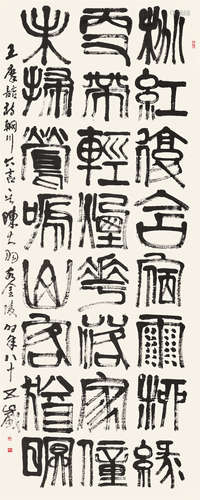 桃紅復含宿雨柳綠
更帶輕煙華落家僮
未掃鶯啼山客猶眠
王摩詰詩輞川六言 陳大羽客金陵時年八十又五歲